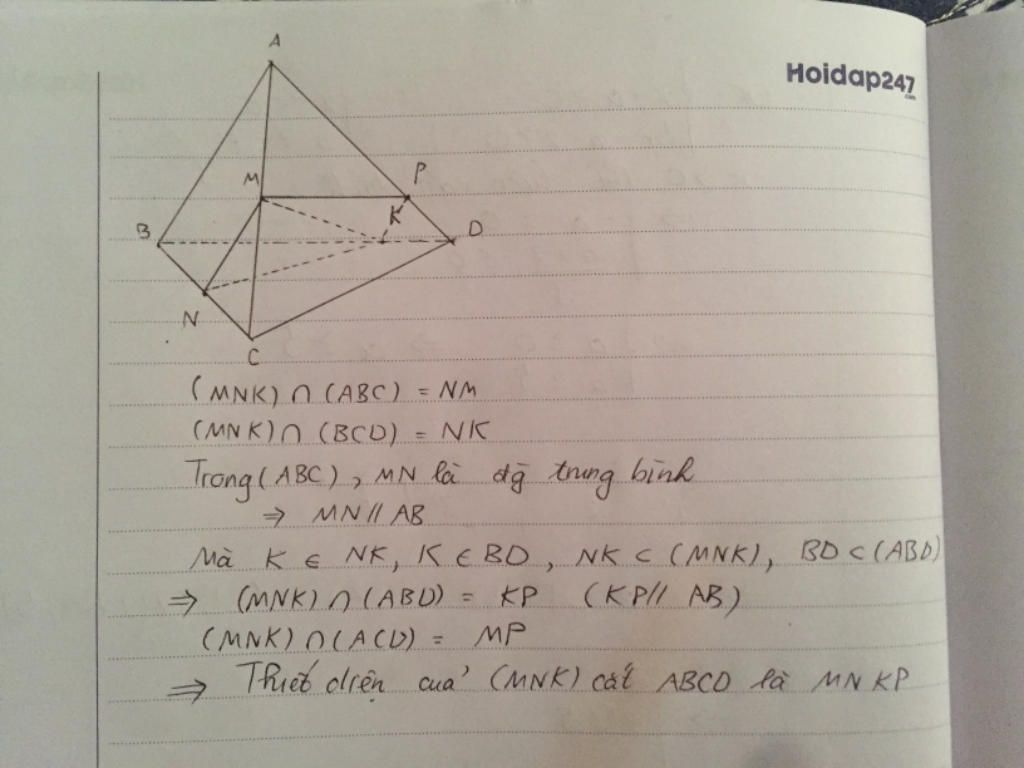 Hoidap247
.com
A
M
P
K
B
D
N
C
(MNK) ∩ (ABC) = NM
(MNK) ∩ (BCD) = NK
Trong (ABC), MN là đg̃ trung bình
⇒ MN // AB
Mà K ∈ NK, K ∈ BD, NK ⊂ (MNK), BD ⊂ (ABD)
⇒ (MNK) ∩ (ABD) = KP (KP // AB)
(MNK) ∩ (ACD) = MP
⇒ Thiết diện của (MNK) cắt ABCD là MNKP